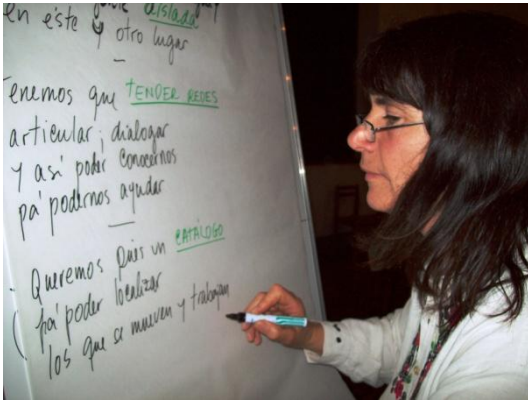 en éste aislada
y otro lugar
Tenemos que TENDER REDES
articular; dialogar
y así poder conocernos
pa' podernos ayudar
Queremos pues un CATÁLOGO
pa' poder localizar
los que se mueven y trabajan